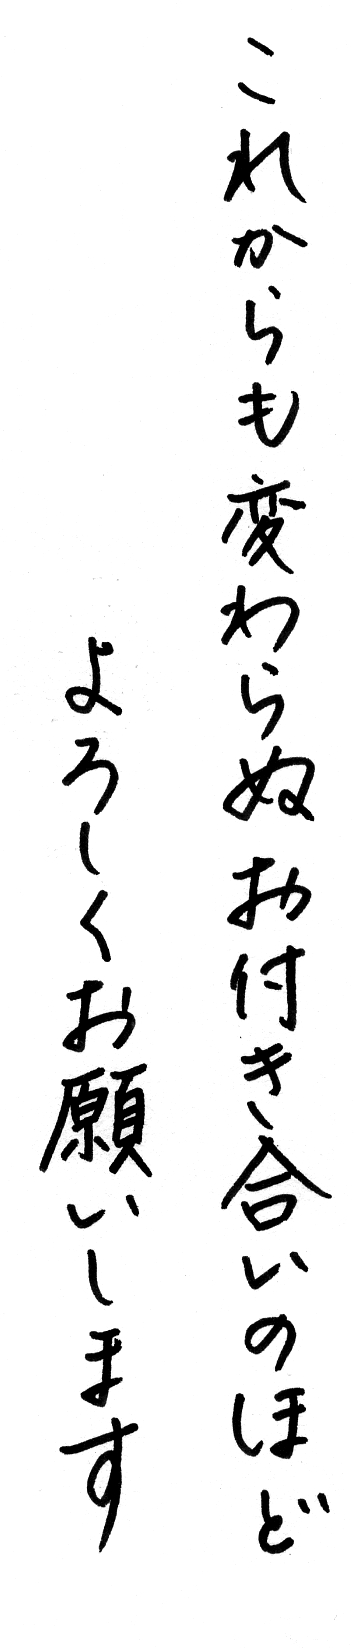 これからも変わらぬお付き合いのほど
よろしくお願いします